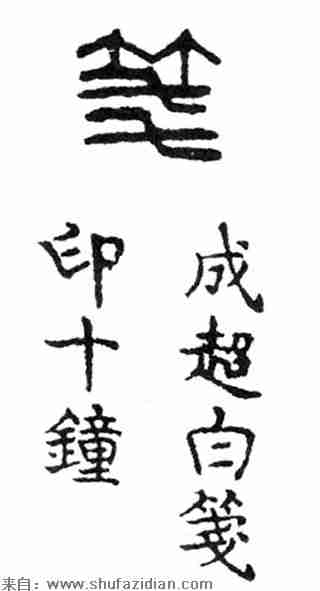 箋
成超白箋
印十鐘
来自：www.shufazidian.com